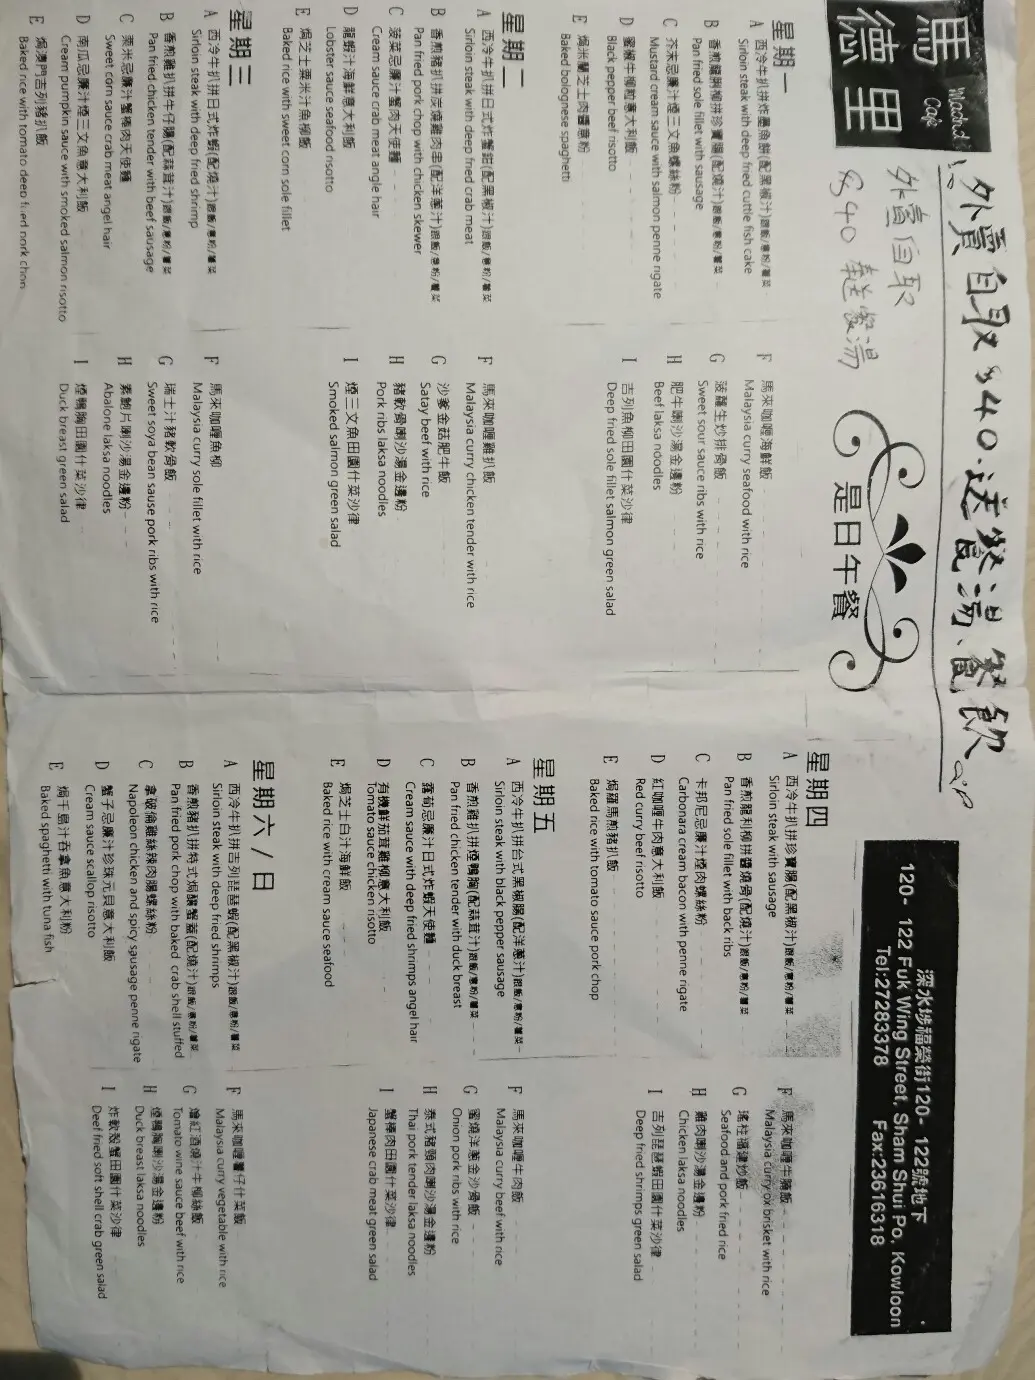 馬德里
Madrid Cafe
外賣自取
$40 轉餐湯
外賣自取$40.送餐湯、餐飲
是日午餐
深水埗福榮街120- 122號地下
120- 122 Fuk Wing Street, Sham Shui Po, Kowloon
Tel:27283378 Fax:23616318
星期一
A 西冷牛扒拼炸墨魚餅(配黑椒汁)跟飯/意粉/薯菜
Sirloin steak with deep fried cuttle fish cake
B 香煎龍脷柳拼珍寶腸(配燒汁)跟飯/意粉/薯菜
Pan fried sole fillet with sausage
C 芥末忌廉汁煙三文魚螺絲粉
Mustard cream sauce with salmon penne rigate
D 蜜椒牛柳粒意大利飯
Black pepper beef risotto
E 焗米蘭芝士肉醬意粉
Baked bolognese spaghetti
F 馬來咖喱海鮮飯
Malaysia curry seafood with rice
G 菠蘿生炒排骨飯
Sweet sour sauce ribs with rice
H 肥牛喇沙湯金邊粉
Beef laksa noodles
I 吉列魚柳田園什菜沙律
Deep fried sole fillet salmon green salad
星期二
A 西冷牛扒拼日式炸蟹鉗(配黑椒汁)跟飯/意粉/薯菜
Sirloin steak with deep fried crab meat
B 香煎豬扒拼炭燒雞肉串(配洋蔥汁)跟飯/意粉/薯菜
Pan fried pork chop with chicken skewer
C 菠菜忌廉汁蟹肉天使麵
Cream sauce crab meat angle hair
D 龍蝦汁海鮮意大利飯
Lobster sauce seafood risotto
E 焗芝士粟米汁魚柳飯
Baked rice with sweet corn sole fillet
F 馬來咖喱雞扒飯
Malaysia curry chicken tender with rice
G 沙爹金菇肥牛飯
Satay beef with rice
H 豬軟骨喇沙湯金邊粉
Pork ribs laksa noodles
I 煙三文魚田園什菜沙律
Smoked salmon green salad
星期三
A 西冷牛扒拼日式炸蝦(配燒汁)跟飯/意粉/薯菜
Sirloin steak with deep fried shrimp
B 香煎雞扒拼牛仔腸(配蒜茸汁)跟飯/意粉/薯菜
Pan fried chicken tender with beef sausage
C 粟米忌廉汁蟹棒肉天使麵
Sweet corn sauce crab meat angel hair
D 南瓜忌廉汁煙三文魚意大利飯
Cream pumpkin sauce with smoked salmon risotto
E 焗澳門吉列豬扒飯
Baked rice with tomato deep fried pork chop
F 馬來咖喱魚柳
Malaysia curry sole fillet with rice
G 瑞士汁豬軟骨飯
Sweet soya bean sause pork ribs with rice
H 素鮑片喇沙湯金邊粉
Abalone laksa noodles
I 煙鴨胸田園什菜沙律
Duck breast green salad
星期四
A 西冷牛扒拼珍寶腸(配黑椒汁)跟飯/意粉/薯菜
Sirloin steak with sausage
B 香煎龍利柳拼醬燒骨(配燒汁)跟飯/意粉/薯菜
Pan fried sole fillet with back ribs
C 卡邦尼忌廉汁煙肉螺絲粉
Carbonara cream bacon with penne rigate
D 紅咖喱牛肉意大利飯
Red curry beef risotto
E 焗羅馬煎豬扒飯
Baked rice with tomato sauce pork chop
F 馬來咖喱牛腩飯
Malaysia curry ox brisket with rice
G 瑤柱福建炒飯
Seafood and pork fried rice
H 雞肉喇沙湯金邊粉
Chicken laksa noodles
I 吉列琵琶蝦田園什菜沙律
Deep fried shrimps green salad
星期五
A 西冷牛扒拼台式黑椒腸(配洋蔥汁)跟飯/意粉/薯菜
Sirloin steak with black pepper sausage
B 香煎雞扒拼煙鴨胸(配蒜茸汁)跟飯/意粉/薯菜
Pan fried chicken tender with duck breast
C 蘑菇忌廉汁日式炸蝦天使麵
Cream sauce with deep fried shrimps angel hair
D 有機鮮茄茸雞柳意大利飯
Tomato sauce chicken risotto
E 焗芝士白汁海鮮飯
Baked rice with cream sauce seafood
F 馬來咖喱牛肉飯
Malaysia curry beef with rice
G 蜜燒洋蔥金沙骨飯
Onion pork ribs with rice
H 泰式豬頸肉喇沙湯金邊粉
Thai pork tender laksa noodles
I 蟹棒肉田園什菜沙律
Japanese crab meat green salad
星期六/日
A 西冷牛扒拼吉列琵琶蝦(配黑椒汁)跟飯/意粉/薯菜
Sirloin steak with deep fried shrimps
B 香煎豬扒拼特式焗釀蟹蓋(配燒汁)跟飯/意粉/薯菜
Pan fried pork chop with baked crab shell stuffed
C 拿破倫雞絲辣肉腸螺絲粉
Napoleon chicken and spicy sausage penne rigate
D 蟹子忌廉汁珍珠元貝意大利飯
Cream sauce scallop risotto
E 焗千島汁吞拿魚意大利粉
Baked spaghetti with tuna fish
F 馬來咖喱薯仔什菜飯
Malaysia curry vegetable with rice
G 燴紅酒燒汁牛柳絲飯
Tomato wine sauce beef with rice
H 煙鴨胸喇沙湯金邊粉
Duck breast laksa noodles
I 炸軟殼蟹田園什菜沙律
Deef fried soft shell crab green salad